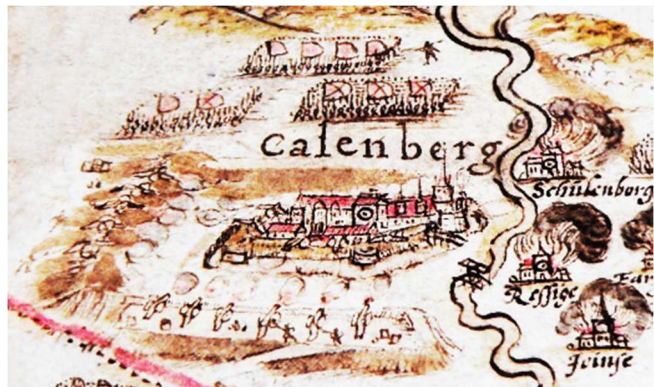 Calenberg
Schulenborg
Reſsige
Jeinſe